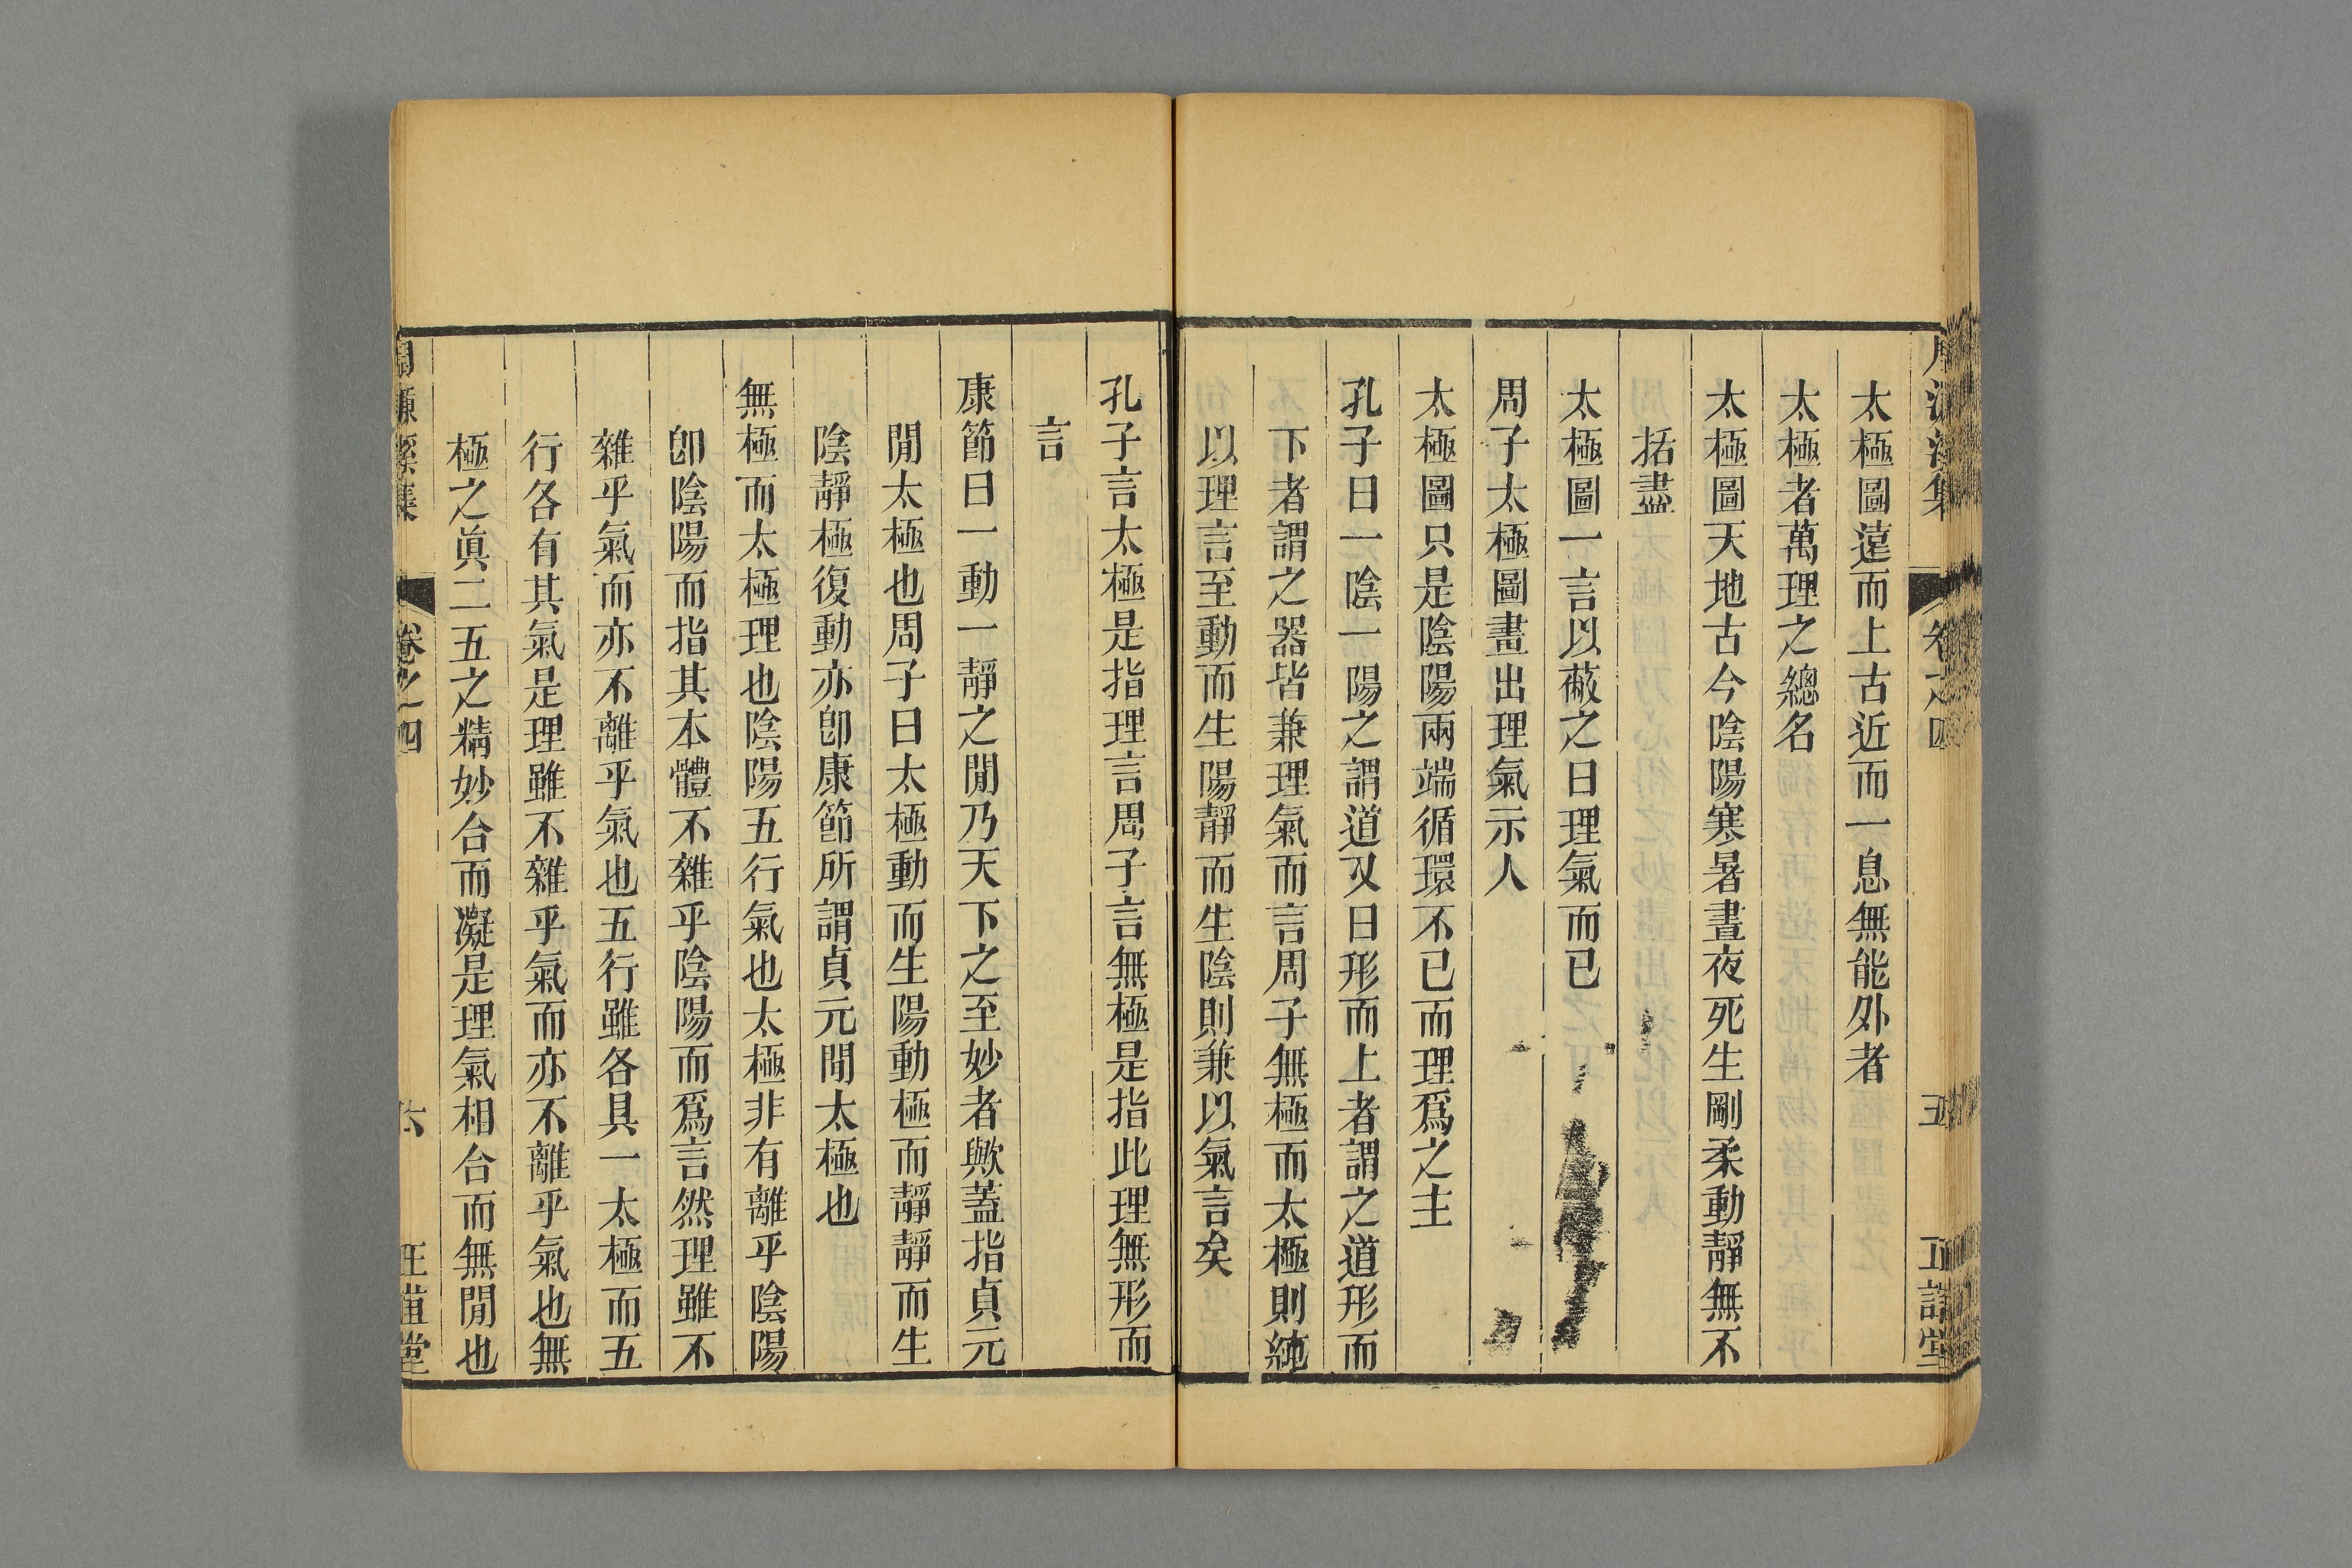 太極圖遠而上古近而一息無能外者
太極者萬理之總名
太極圖天地古今陰陽寒暑晝夜死生剛柔動靜無不
括盡
太極圖一言以蔽之曰理氣而已
周子太極圖畫出理氣示人
太極圖只是陰陽兩端循環不已而理爲之主
孔子曰一陰一陽之謂道又曰形而上者謂之道形而
下者謂之器皆兼理氣而言周子無極而太極則純
以理言至動而生陽靜而生陰則兼以氣言矣
孔子言太極是指理言周子言無極是指此理無形而
言
康節曰一動一靜之閒乃天下之至妙者歟蓋指貞元
閒太極也周子曰太極動而生陽動極而靜靜而生
陰靜極復動亦卽康節所謂貞元閒太極也
無極而太極理也陰陽五行氣也太極非有離乎陰陽
卽陰陽而指其本體不雜乎陰陽而爲言然理雖不
雜乎氣而亦不離乎氣也五行雖各具一太極而五
行各有其氣是理雖不雜乎氣而亦不離乎氣也無
極之眞二五之精妙合而凝是理氣相合而無閒也
周濂溪集
卷之四
六
正誼堂